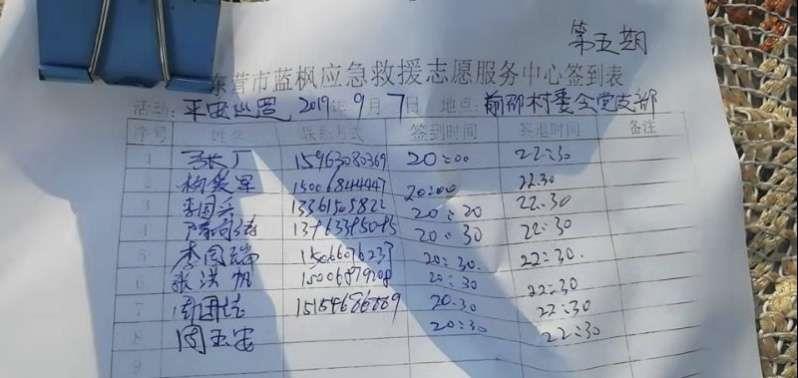 第五期
东营市蓝枫应急救援志愿服务中心签到表
活动: 平安巡逻 2019年9月7日 地点: 前邵村委会党支部
序号 姓名 联系方式 签到时间 签退时间 备注
1 15963080369 20:00 22:30
2 杨爱军 15006844447 20:00 22:30
3 李国兵 13361505822 20:20 22:30
4 20:30 22:30
5 李国瑞 15066096237 20:30. 22:30.
6 张洪帆 15006879208 20:30 22:30
7 15154686669 20:30 22:30
8 周玉安 20:30 22:30
9